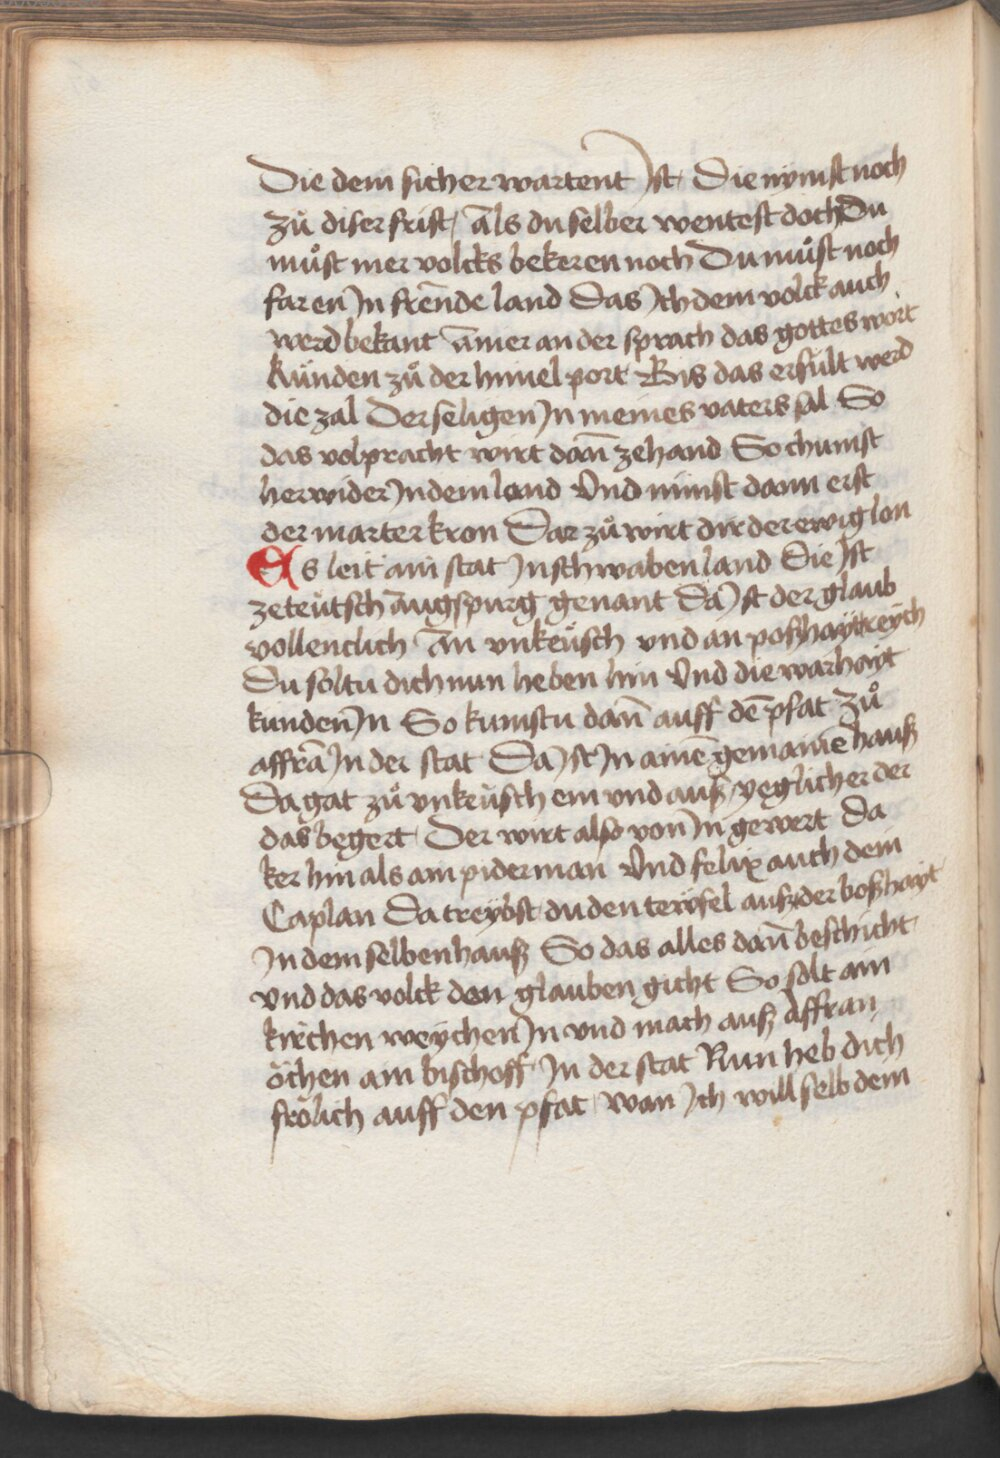 Die dem sicher wartent Ist Die nÿmst noch
zů diser frist / Als du selber wentest doch Du
můst mer volcks bekeren noch Du můst noch
faren In frēnde land Das Ich dem volck auch
werd bekant āmer an der sprach das gottes wort
künden zů der himel port Bis das erfült werd
die zal Der seligen In meines vaters sal So
das volpracht wirt dann̄ zehand So chumst
her wider In dem land Vnd nimst dann erst
der marter kron Dar zů wirt dir der ewig lon
Es leit ain stat In schwaben land Die Ist
zeteütsch Augspurg genant Da Ist der glaub
vollenclich An vnkeüsch vnd an poßhaÿt reÿch
Du soltu dich nun heben hin Vnd die warhayt
kunden In So kumstu dan̄ auff dē pfat zů
affrā In der stat Da Ist In ainē gemainē hauß
Da gat zů vnkeüsch ein vnd auß / yeglicher der
das begert Der wirt also von In gewert Da
ker hin als ain piderman Vnd felix auch dein
Caplan Da treÿbst du den teüfel auß der boßhayt
In dem selben hauß So das alles dan̄ beschicht
vnd das volck den glauben gicht So solt ain
kirchen weÿchen In vnd mach auß Affran
öchen ain bischoff In der stat Nun heb dich
frölich auff den pfat wan Ich will selb dem